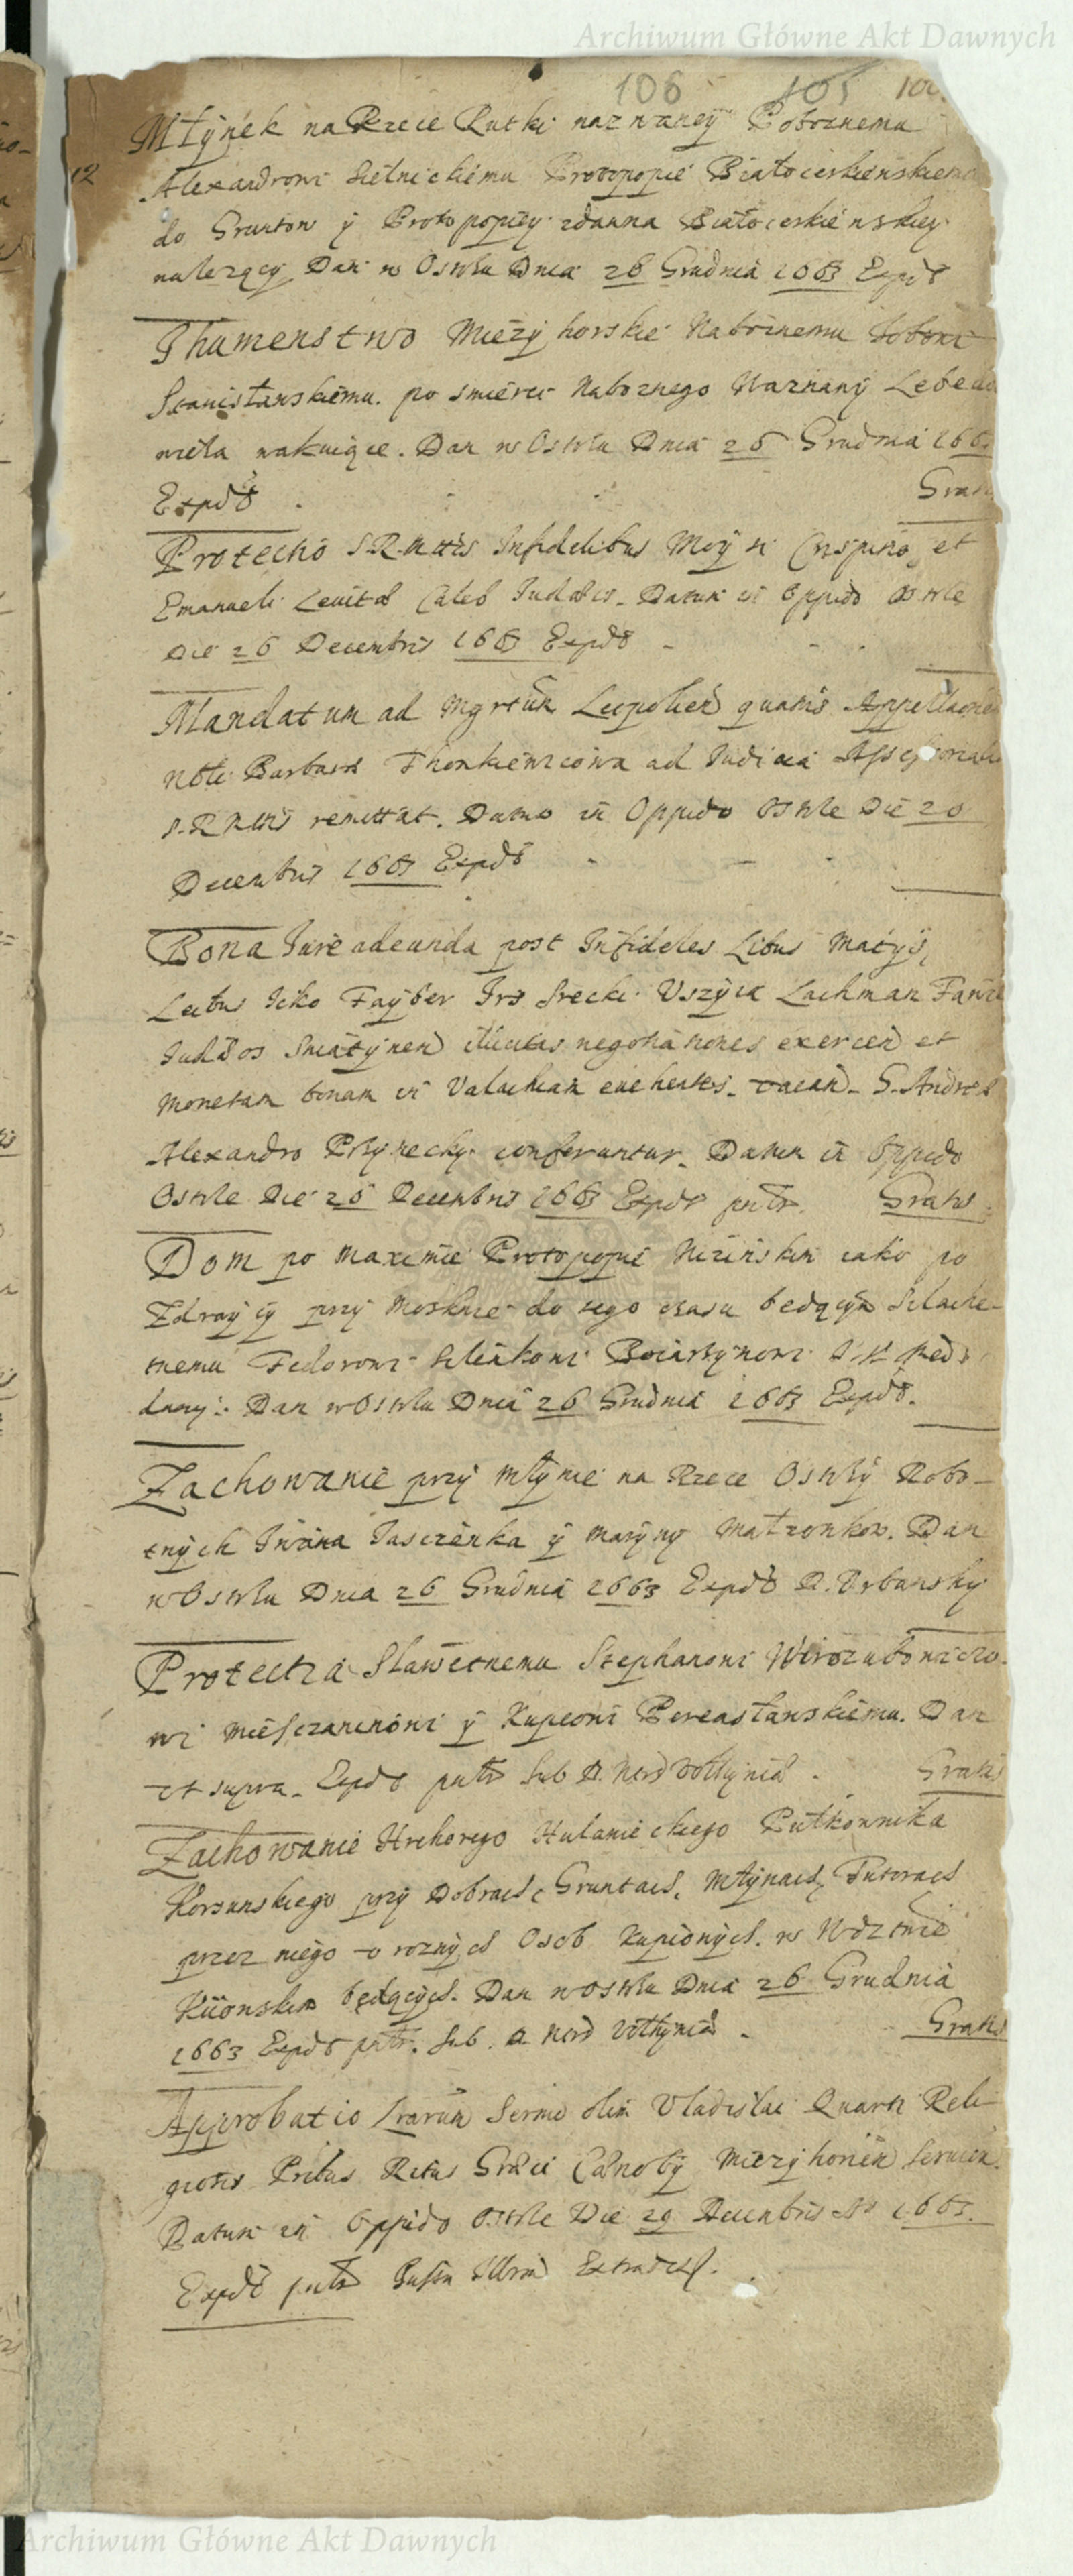 Archiwum Główne Akt Dawnych
106 105
Młynek na Rzece Rutki nazwaney Pobożnemu
12
Alexandrowi Sielnickiemu Protopopie Białocerkiewskiemu
do Gruntow y Protopopiey zdawna Białocerkiewskiey
nalezący Dan w Ostrlu Dnia 26 Grudnia 1663 Expdt
Ihumenstwo Miezyhorskie Naboznemu
Stanisławskiemu. po smierci Naboznego
wakuiące. Dan w Ostrlu Dnia 26 Grudnia 166
Expdt Grat
Protectio S.R.Mttis Infidelibus Moysi Crispino et
Emanueli Levitae Caleb Iudaeis. Datum in Oppido Ostrle
Die 26 Decembris 1663 Expdt
Mandatum ad Mgrtum Leopolien quatnus Appellaonem
Nblis Barbara ad Iudicia Assessorialia
S.R.Mttis remittat. Datum in Oppido Ostrle Die 20
Decembris 1663 Expdt
Bona Iure adeunda post Infideles Litus Matyis,
Leibus Icko Fayber Irs Srecki Uszyia Lachman
Iudaeos Sniatynen illicitas negotiationes exercen et
monetam bonam in Valachiam evehentes. vacan. G. Andreae
Alexandro conferuntur. Datum in Oppido
Ostrle Die 26 Decembris 1663 Expdt Gratis
Dom po Maximie Protopopie Niżinskim iako po
Zdraycy przy Moskwie do tego czasu będącym Szlache-
tnemu Fedorowi
dany. Dan w Ostrlu Dnia 26 Grudnia 1663 Expdt.
Zachowanie przy Młynie na Rzece Ostrly Robo-
tnych Iwana Iasczenka y Maryny Małzonkow. Dan
w Ostrlu Dnia 26 Grudnia 1663 Expdt D. Urbansky
Protectia Sławetnemu Stephanowi
wi Miesczaninowi y Kupcowi Pereasławskiemu. Dan
ut supra. Expdt Gratis
Zachowanie Hrehorego Hulanickiego Pułkownika
Korsunskiego przy Dobrach, Gruntach, Młynach, Futorach
przez niego u roznych Osob Kupionych. w Wdztwie
Kiiowskim będących. Dan w Ostrlu Dnia 26 Grudnia
1663 Expdt Gratis
Approbatio Lrarum Sermi olim Vladislai Quarti Reli-
giosis Pribus Ritus Graeci Caenoby Miezyhorien servien.
Datum in Oppido Ostrle Die 29 Decembris Ao 1663.
Expdt
Archiwum Główne Akt Dawnych